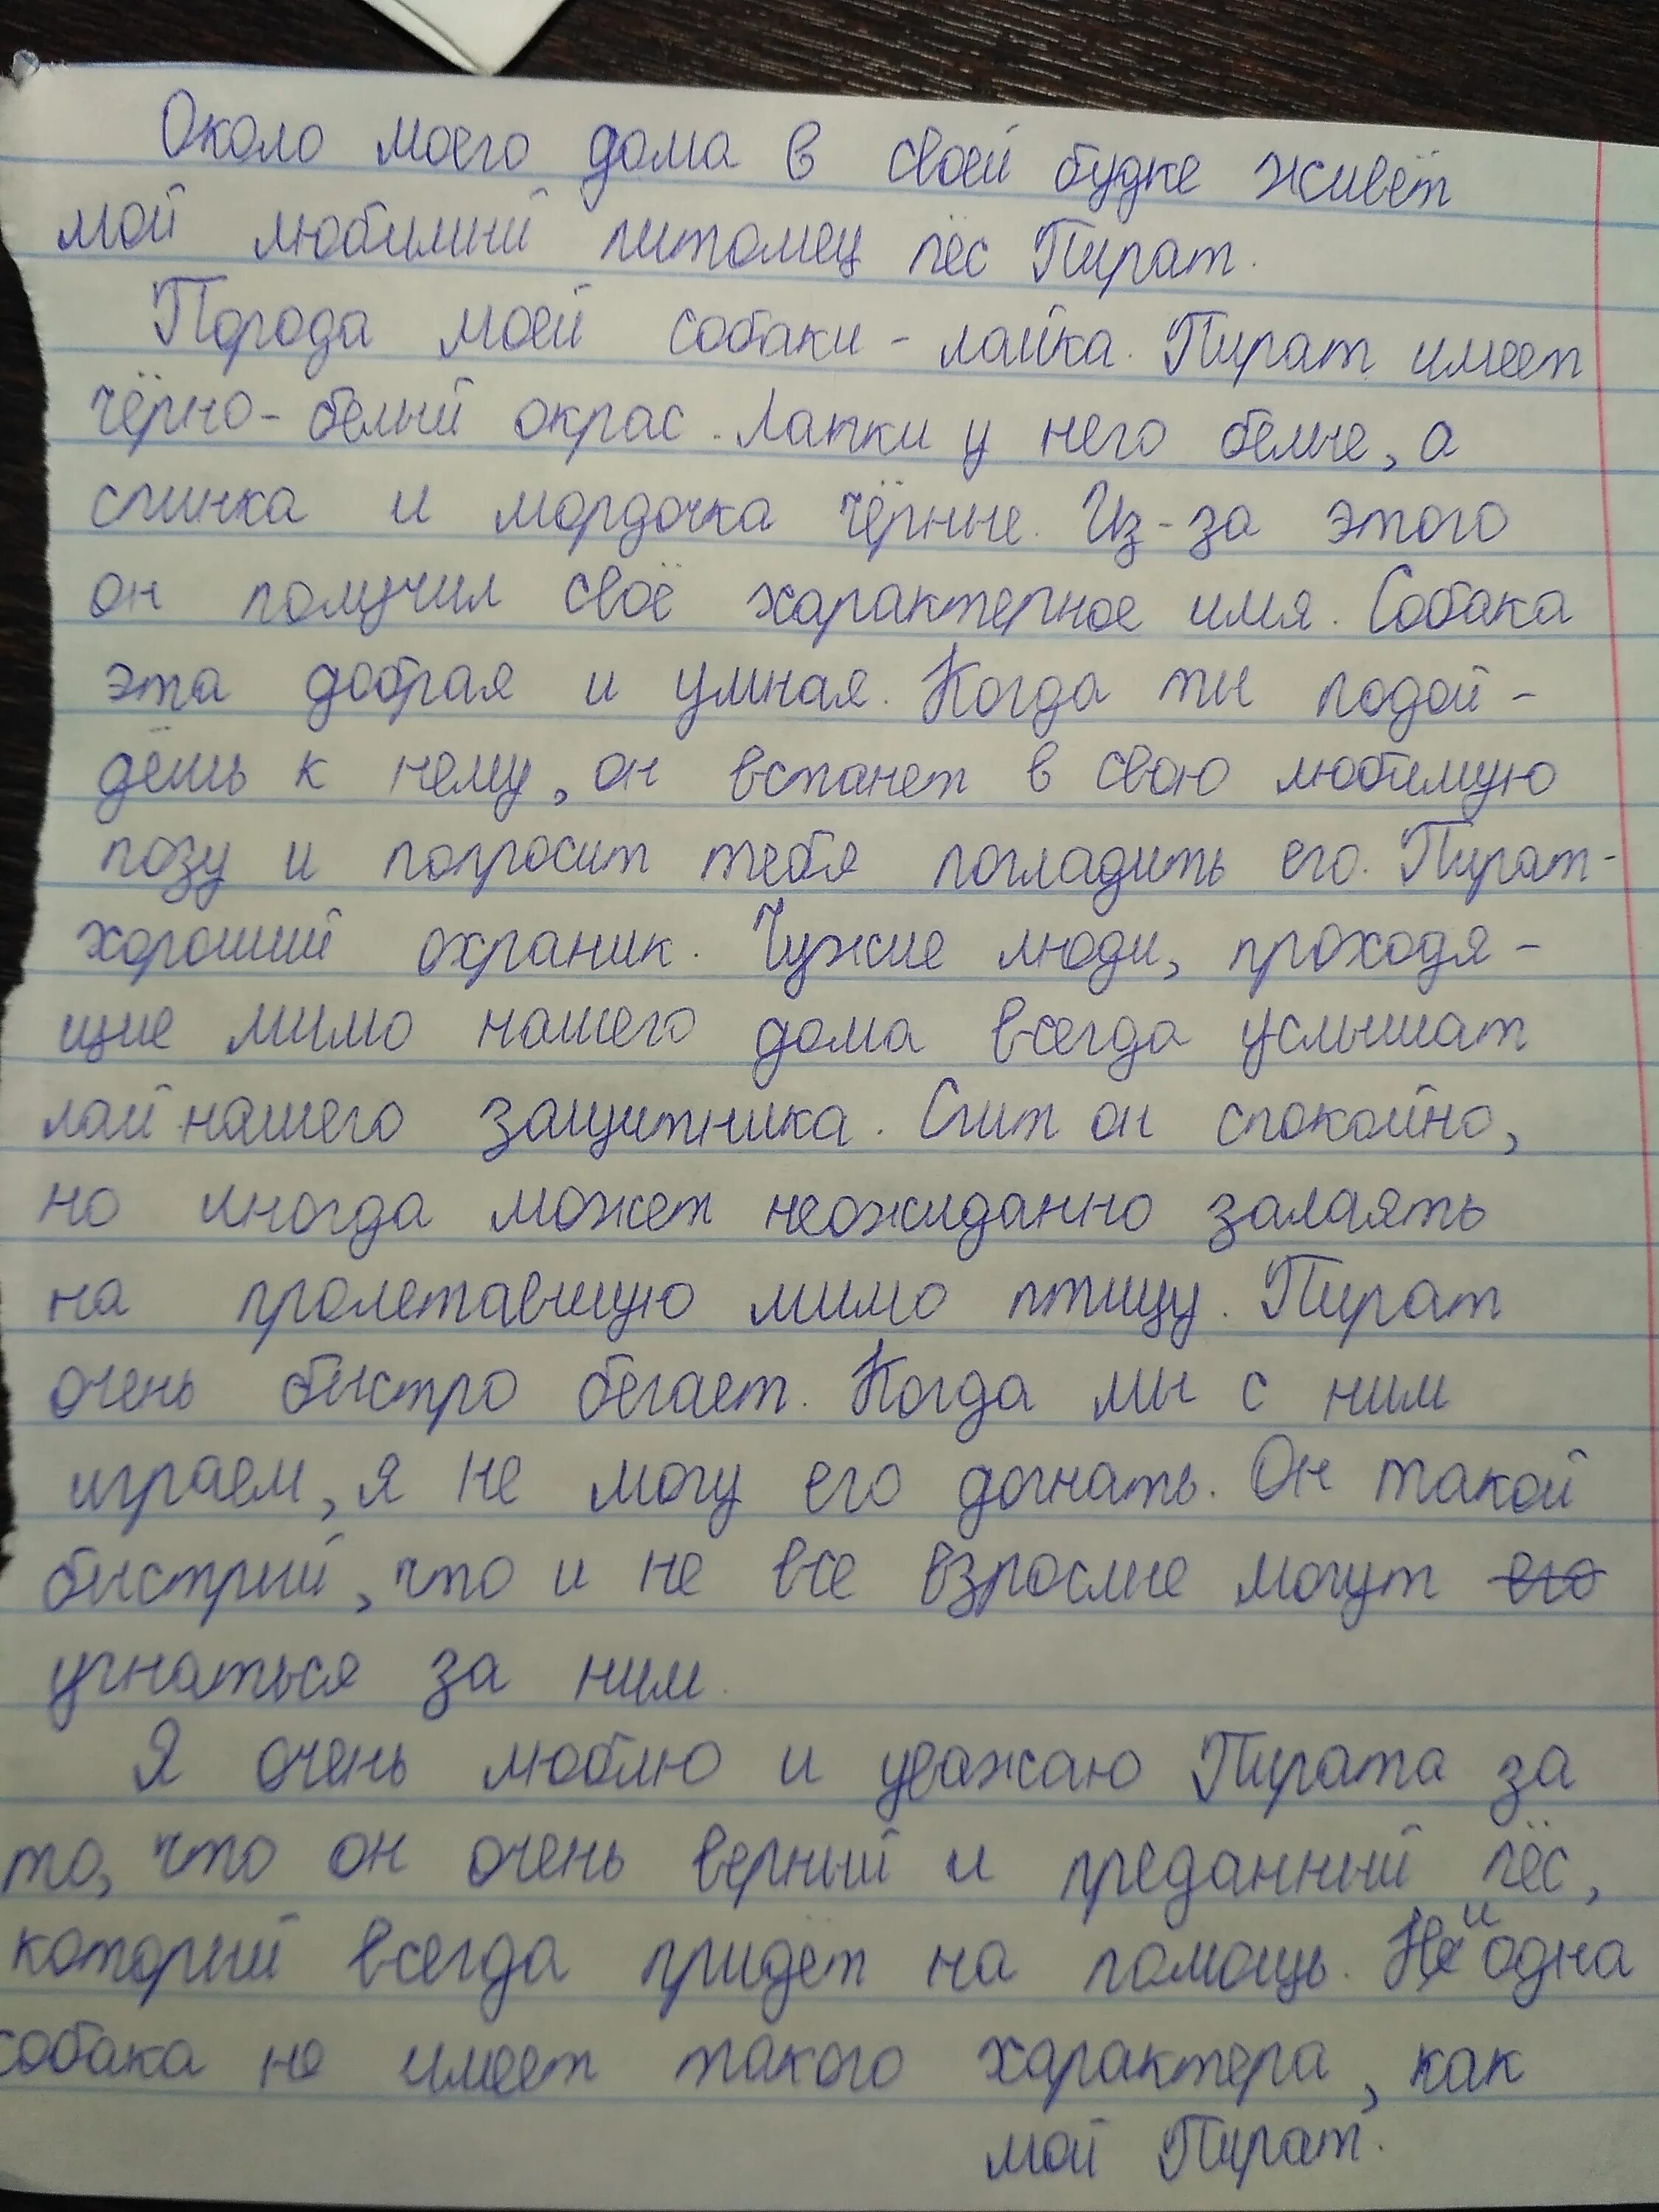 Около моего дома в своей будке живёт
мой любимый питомец пёс Пират.
Порода моей собаки - лайка. Пират имеет
чёрно-белый окрас. Лапки у него белые, а
спинка и мордочка чёрные. Из-за этого
он получил своё характерное имя. Собака
эта добрая и умная. Когда ты подой-
дёшь к нему, он встанет в свою любимую
позу и попросит тебя погладить его. Пират-
хороший охраник. Чужие люди, проходя-
щие мимо нашего дома всегда услышат
лай нашего защитника. Спит он спокойно,
но иногда может неожиданно залаять
на пролетавшую мимо птицу. Пират
очень быстро бегает. Когда мы с ним
играем, я не могу его догнать. Он такой
быстрый, что и не все взрослые могут его
угнаться за ним.
Я очень люблю и уважаю Пирата за
то, что он очень верный и преданный пёс,
который всегда придёт на помощь. Ни одна
собака не имеет такого характера, как
мой Пират.